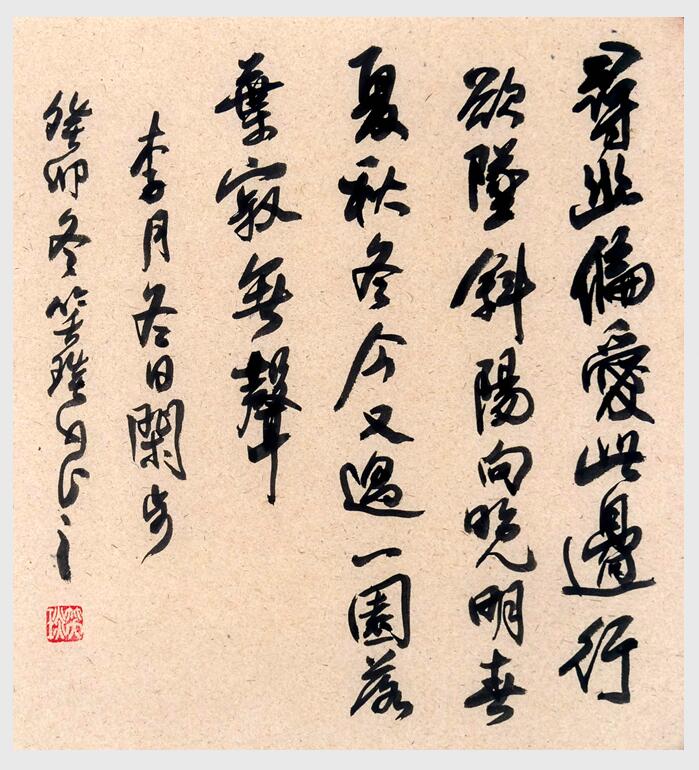 尋幽偏愛此邊行
欲墜斜陽向晚明春
夏秋冬今又過一園落
葉寂無聲
李月冬日閑步
癸卯冬笑